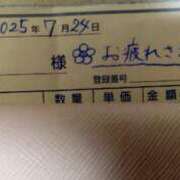 2025年7月24日
様 お疲れさ
登録番号
数量 単価 金額